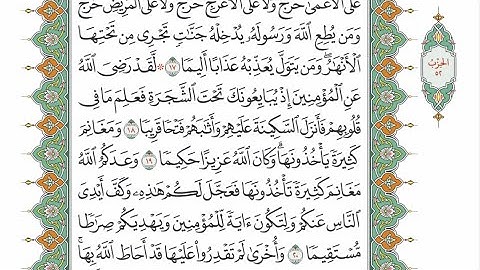 عَلَى ٱلۡأَعۡمَىٰ حَرَجٞ وَلَا عَلَى ٱلۡأَعۡرَجِ حَرَجٞ وَلَا عَلَى ٱلۡمَرِيضِ حَرَجٞۗ
وَمَن يُطِعِ ٱللَّهَ وَرَسُولَهُۥ يُدۡخِلۡهُ جَنَّٰتٖ تَجۡرِي مِن تَحۡتِهَا
ٱلۡأَنۡهَٰرُۖ وَمَن يَتَوَلَّ يُعَذِّبۡهُ عَذَابًا أَلِيمٗا ١٧ ۞ لَّقَدۡ رَضِيَ ٱللَّهُ
عَنِ ٱلۡمُؤۡمِنِينَ إِذۡ يُبَايِعُونَكَ تَحۡتَ ٱلشَّجَرَةِ فَعَلِمَ مَا فِي
قُلُوبِهِمۡ فَأَنزَلَ ٱلسَّكِينَةَ عَلَيۡهِمۡ وَأَثَٰبَهُمۡ فَتۡحٗا قَرِيبٗا ١٨ وَمَغَانِمَ
كَثِيرَةٗ يَأۡخُذُونَهَاۗ وَكَانَ ٱللَّهُ عَزِيزًا حَكِيمٗا ١٩ وَعَدَكُمُ ٱللَّهُ
مَغَانِمَ كَثِيرَةٗ تَأۡخُذُونَهَا فَعَجَّلَ لَكُمۡ هَٰذِهِۦ وَكَفَّ أَيۡدِيَ
ٱلنَّاسِ عَنكُمۡ وَلِتَكُونَ ءَايَةٗ لِّلۡمُؤۡمِنِينَ وَيَهۡدِيَكُمۡ صِرَٰطٗا
مُّسۡتَقِيمٗا ٢٠ وَأُخۡرَىٰ لَمۡ تَقۡدِرُواْ عَلَيۡهَا قَدۡ أَحَاطَ ٱللَّهُ بِهَاۚ
الحِزۡب
٥٢